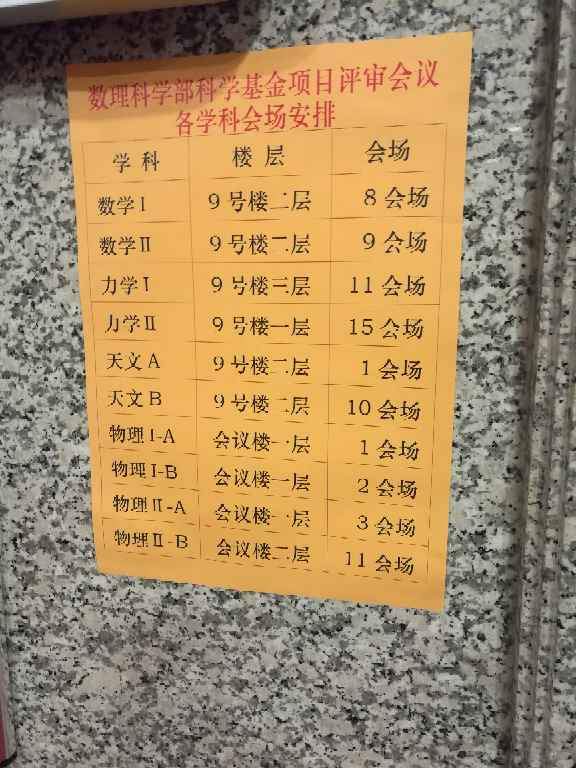 数理科学部科学基金项目评审会议
各学科会场安排
学科 楼层 会场
数学 I 9号楼二层 8会场
数学 II 9号楼二层 9会场
力学 I 9号楼三层 11会场
力学 II 9号楼一层 15会场
天文 A 9号楼二层 1会场
天文 B 9号楼二层 10会场
物理 I-A 会议楼一层 1会场
物理 I-B 会议楼一层 2会场
物理 II-A 会议楼一层 3会场
物理 II-B 会议楼二层 11会场